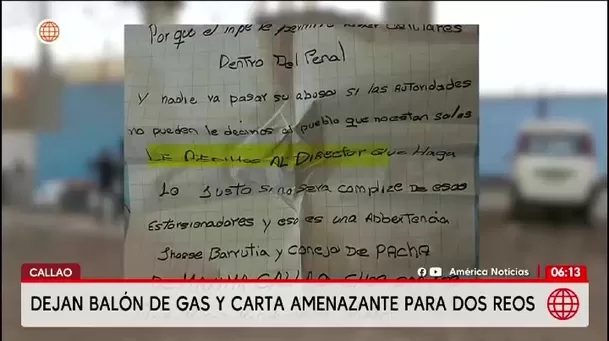 Porque el inpe le permite tener celulares
Dentro Del Penal
Y nadie va pasar su abuso si las Autoridades
no pueden le decimos al pueblo que no estan solos
Le Pedimos AL Director que Haga
Lo Justo si no sera complize De esos
Estorsionadores y eso es una Adbertencia
Barrutia y Conejo De Pacha
América Noticias
CALLAO
06:13
DEJAN BALÓN DE GAS Y CARTA AMENAZANTE PARA DOS REOS